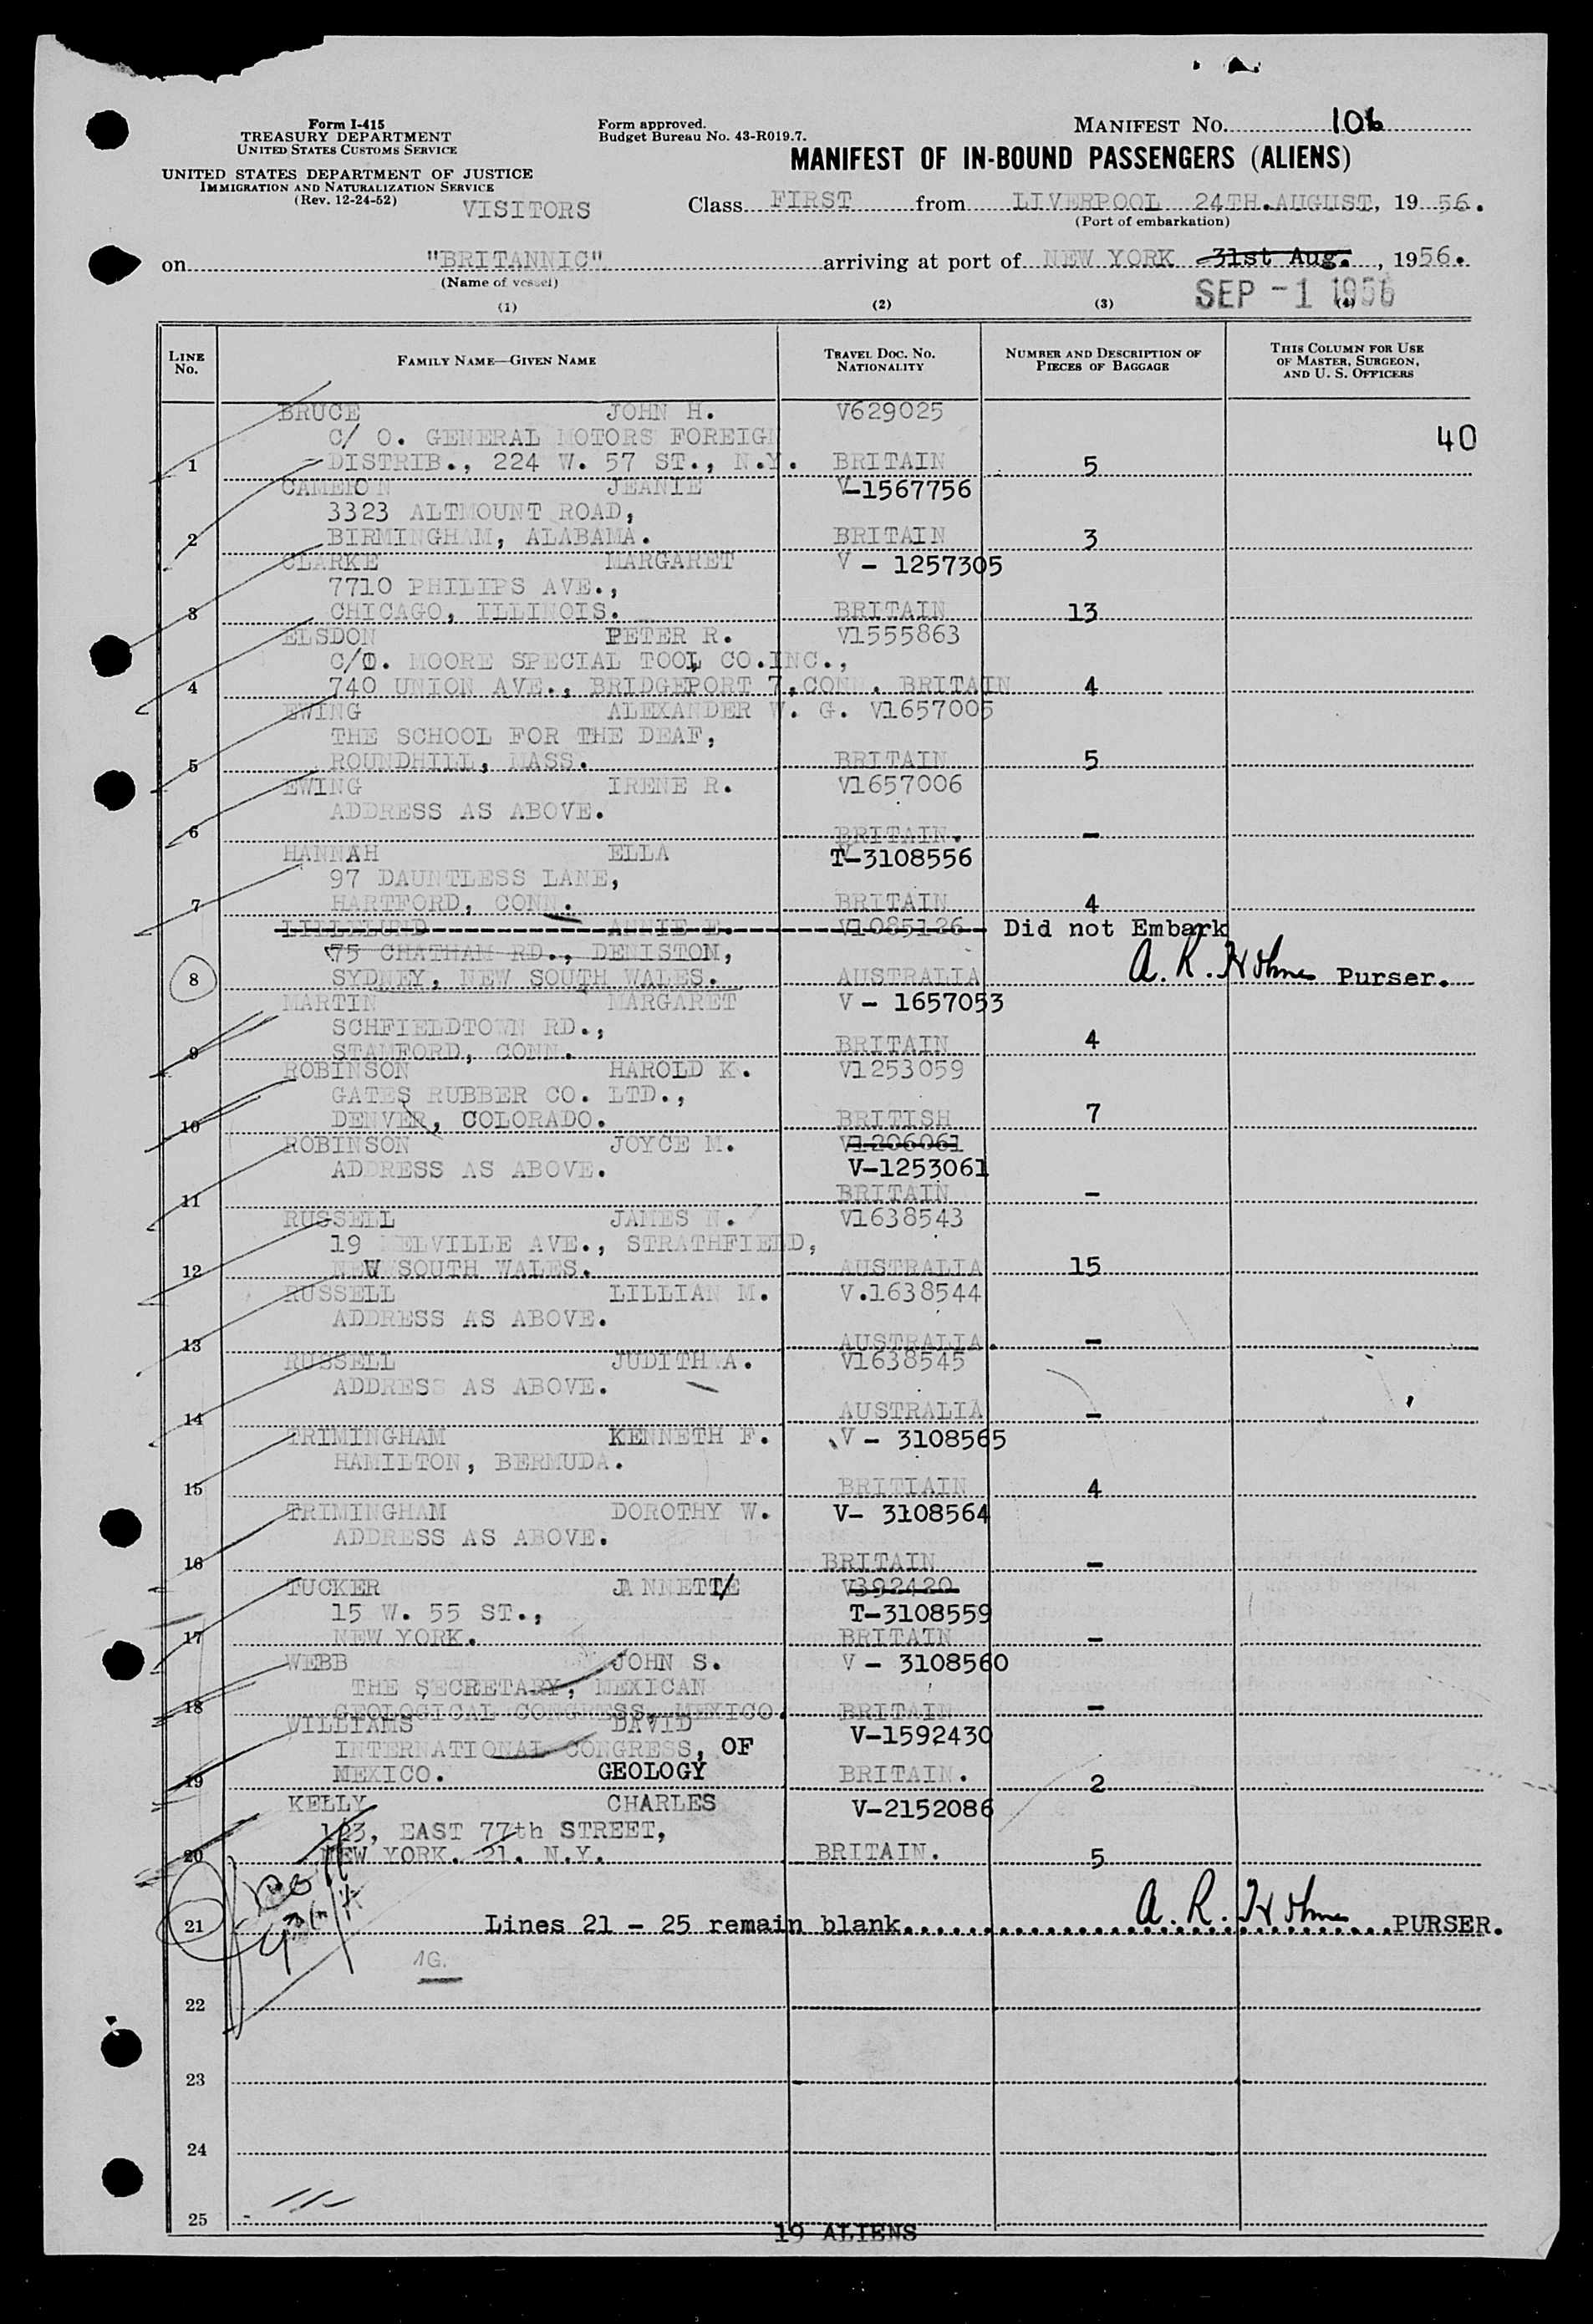 Form I-415
TREASURY DEPARTMENT
UNITED STATES CUSTOMS SERVICE
UNITED STATES DEPARTMENT OF JUSTICE
IMMIGRATION AND NATURALIZATION SERVICE
(Rev. 12-24-52)
VISITORS
Form approved.
Budget Bureau No. 43-R019.7.
MANIFEST No. 106
MANIFEST OF IN-BOUND PASSENGERS (ALIENS)
Class FIRST from LIVERPOOL 24TH.AUGUST, 1956.
(Port of embarkation)
on "BRITANNIC" arriving at port of NEW YORK 31st Aug., 1956.
(Name of vessel)
SEP -1 1956
(1) (2) (3) (4)
LINE No. FAMILY NAME—GIVEN NAME TRAVEL DOC. NO. NATIONALITY NUMBER AND DESCRIPTION OF PIECES OF BAGGAGE THIS COLUMN FOR USE OF MASTER, SURGEON, AND U. S. OFFICERS
BRUCE JOHN H. V629025
C/ O. GENERAL MOTORS FOREIG 40
1 DISTRIB., 224 W. 57 ST., N.Y. BRITAIN 5
CAMERON JEANIE V-1567756
3323 ALTMOUNT ROAD,
2 BIRMINGHAM, ALABAMA. BRITAIN 3
CLARKE MARGARET V - 1257305
7710 PHILIPS AVE.,
3 CHICAGO, ILLINOIS. BRITAIN 13
ELSDON PETER R. V1555863
C/O. MOORE SPECIAL TOOL CO.INC.,
4 740 UNION AVE., BRIDGEPORT 7,CONN. BRITAIN 4
EWING ALEXANDER W. G. V1657005
THE SCHOOL FOR THE DEAF,
5 ROUNDHILL, MASS. BRITAIN 5
EWING IRENE R. V1657006
ADDRESS AS ABOVE.
6 BRITAIN. -
HANNAH ELLA T-3108556
97 DAUNTLESS LANE,
7 HARTFORD, CONN. BRITAIN 4
LILLELUND ANNIE E. V1085126 Did not Embark
75 CHATHAM RD., DENISTON,
8 SYDNEY, NEW SOUTH WALES. AUSTRALIA A. R. Holme Purser.
MARTIN MARGARET V - 1657053
SCHFIELDTOWN RD.,
9 STAMFORD, CONN. BRITAIN 4
ROBINSON HAROLD K. V1253059
GATES RUBBER CO. LTD.,
10 DENVER, COLORADO. BRITISH 7
ROBINSON JOYCE M. V1206061
ADDRESS AS ABOVE. V-1253061
11 BRITAIN -
RUSSELL JAMES N. V1638543
19 MELVILLE AVE., STRATHFIELD,
12 NEW SOUTH WALES. AUSTRALIA 15
RUSSELL LILLIAN M. V.1638544
ADDRESS AS ABOVE.
13 AUSTRALIA. -
RUSSELL JUDITH A. V1638545
ADDRESS AS ABOVE.
14 AUSTRALIA -
TRIMINGHAM KENNETH F. V - 3108565
HAMILTON, BERMUDA.
15 BRITIAIN 4
TRIMINGHAM DOROTHY W. V- 3108564
ADDRESS AS ABOVE.
16 BRITAIN -
TUCKER JANNETT/E V392420
15 W. 55 ST., T-3108559
17 NEW YORK. BRITAIN -
WEBB JOHN S. V - 3108560
THE SECRETARY, MEXICAN
18 GEOLOGICAL CONGRESS, MEXICO. BRITAIN -
WILLIAMS DAVID V-1592430
INTERNATIONAL CONGRESS, OF
19 MEXICO. GEOLOGY BRITAIN. 2
KELLY CHARLES V-2152086
123, EAST 77th STREET,
20 NEW YORK. 21. N.Y. BRITAIN. 5
21 Lines 21 - 25 remain blank. A. R. Holme PURSER.
22
23
24
25
19 ALIENS